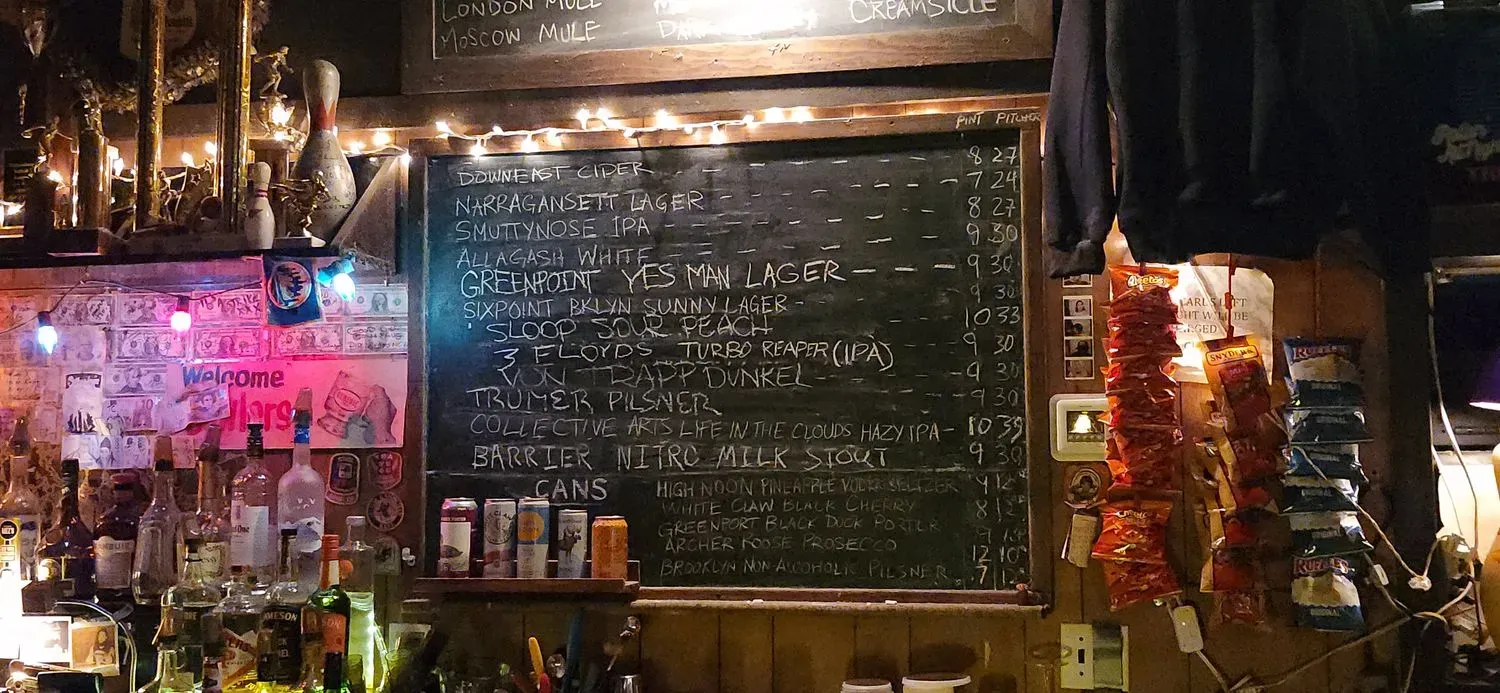 LONDON MULE
MOSCOW MULE
CREAMSICLE
PINT PITCHER
DOWNEAST CIDER 8 27
NARRAGANSETT LAGER 7 24
SMUTTYNOSE IPA 8 27
ALLAGASH WHITE 9 30
GREENPOINT YES MAN LAGER 9 30
SIXPOINT BKLYN SUNNY LAGER 9 30
SLOOP SOUR PEACH 10 33
3 FLOYDS TURBO REAPER (IPA) 9 30
VON TRAPP DUNKEL 9 30
TRUMER PILSNER 9 30
COLLECTIVE ARTS LIFE IN THE CLOUDS HAZY IPA 10 39
BARRIER NITRO MILK STOUT 9 30
CANS
HIGH NOON PINEAPPLE VODKA SELTZER 9 12
WHITE CLAW BLACK CHERRY 8 12
GREENPORT BLACK DUCK PORTER 9
ARCHER ROOSE PROSECCO 12
BROOKLYN NON-ALCOHOLIC PILSNER 7
Welcome
Cheetos
SNYDER'S
RUFFLES
RUFFLES